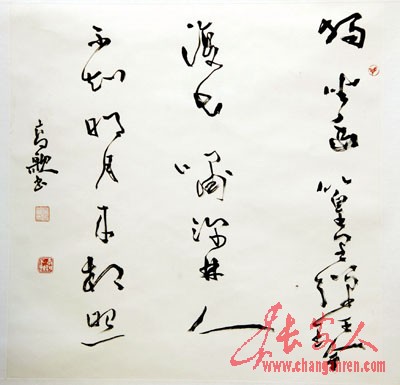 獨坐幽篁里彈琴
復長嘯深林人
不知明月來相照
高歌书
长安人
www.changanren.com